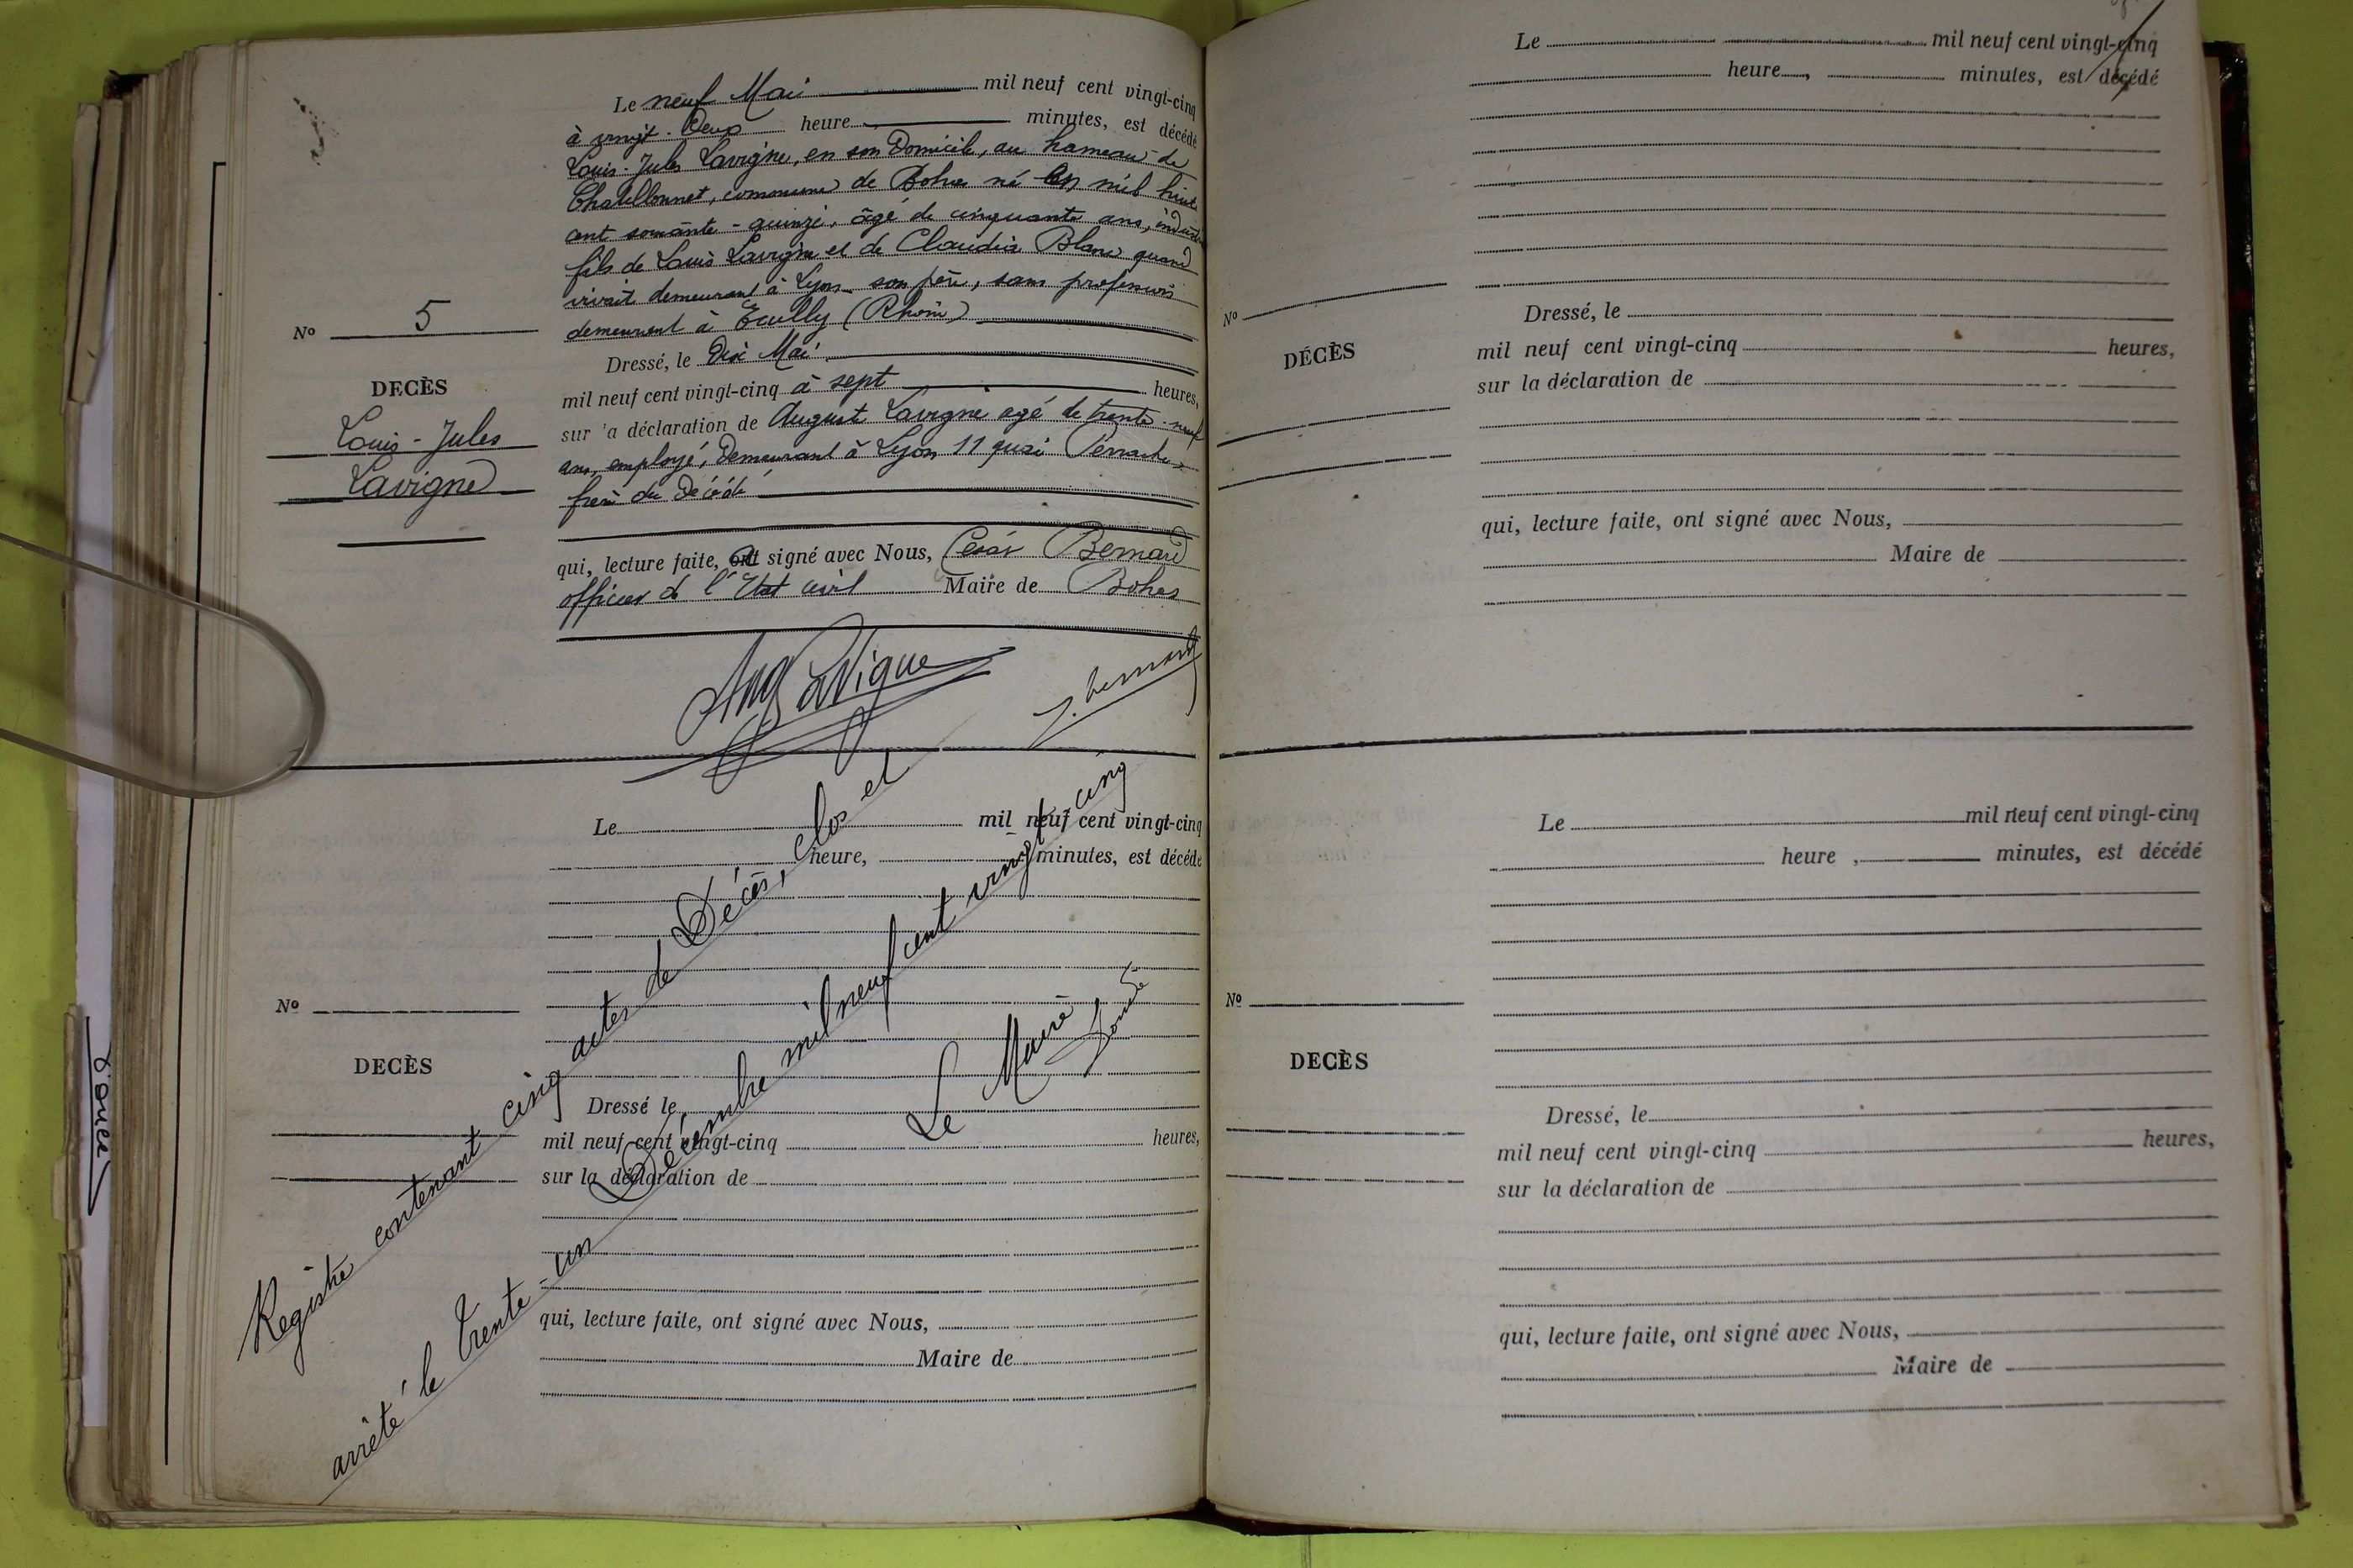 Le neuf Mai mil neuf cent vingt-cinq
à vingt-Deux heure minutes, est décédé
Louis-Jules Lavigne, en son Domicile, au hameau de
Chatillonnet, commune de Bohas né en mil huit
cent soixante-quinze, âgé de cinquante ans,
fils de Louis Lavigne et de Claudia Blanc quand
vivait demeurant à Lyon son père, sans profession
demeurant à Ecully (Rhône)
Nº 5
Dressé, le Dix Mai
mil neuf cent vingt-cinq à sept heures,
DECÈS
Louis-Jules
Lavigne
sur la déclaration de August Lavigne agé de trente-neuf
ans, employé, Demeurant à Lyon 11 quai Perrache
frère du Décédé
qui, lecture faite, ont signé avec Nous, César Bernard
officier de l'Etat civil Maire de Bohas
Aug Lavigne
J. Bernard
Le mil neuf cent vingt-cinq
heure, minutes, est décédé
Nº
DECÈS
Dressé le
mil neuf cent vingt-cinq heures,
sur la déclaration de
qui, lecture faite, ont signé avec Nous,
Maire de
Registre contenant cinq actes de Décès, clos et
arrêté le Trente-un Décembre mil neuf cent vingt-cinq
Le Maire
Le mil neuf cent vingt-cinq
heure, minutes, est décédé
Nº
DÉCÈS
Dressé, le
mil neuf cent vingt-cinq heures,
sur la déclaration de
qui, lecture faite, ont signé avec Nous,
Maire de
Le mil neuf cent vingt-cinq
heure, minutes, est décédé
Nº
DECÈS
Dressé, le
mil neuf cent vingt-cinq heures,
sur la déclaration de
qui, lecture faite, ont signé avec Nous,
Maire de